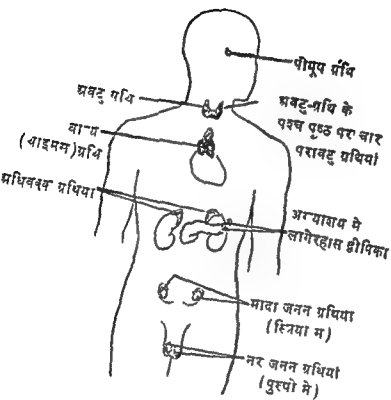 पीयूष ग्रंथि
अवटु ग्रंथि
अवटु-ग्रंथि के
पश्च पृष्ठ पर चार
परावटु ग्रंथियां
(थाइमस) ग्रंथि
अधिवृक्क ग्रंथियां
अग्न्याशय मे
लांगेरहांस द्वीपिका
मादा जनन ग्रंथियां
(स्त्रियो म)
नर जनन ग्रंथियां
(पुरुषो मे)